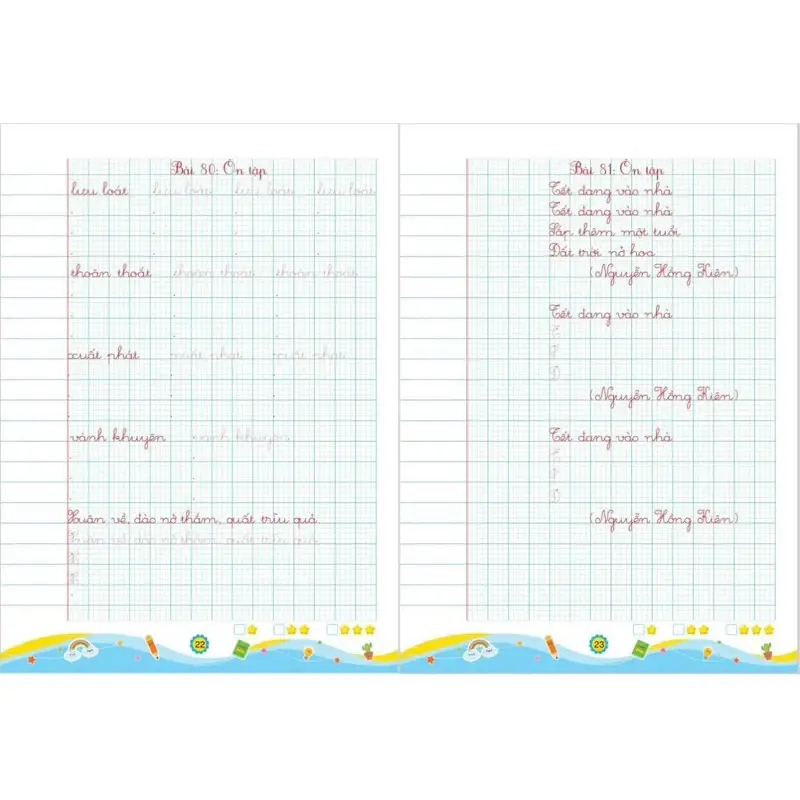 Bài 80: Ôn tập
lưu loát lưu loát lưu loát lưu loát
thoăn thoắt thoăn thoắt thoăn thoắt
xuất phát xuất phát xuất phát
vành khuyên vành khuyên
Xuân về, đào nở thắm, quất trĩu quả.
Xuân về, đào nở thắm, quất trĩu quả.
X
X
22
Bài 81: Ôn tập
Tết đang vào nhà
Tết đang vào nhà
Sắp thêm một tuổi
Đất trời nở hoa.
(Nguyễn Hồng Kiên)
Tết đang vào nhà
T
S
Đ
(Nguyễn Hồng Kiên)
Tết đang vào nhà
T
S
Đ
(Nguyễn Hồng Kiên)
23